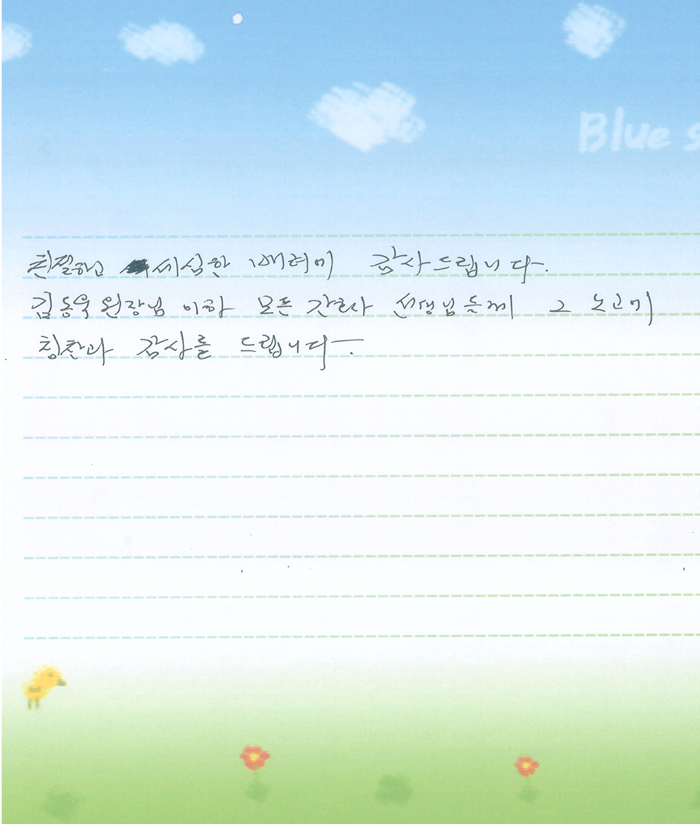 Blue s
친절하고 세심한 배려에 감사드립니다.
김동욱 원장님 이하 모든 간호사 선생님들께 그 노고에
칭찬과 감사를 드립니다.